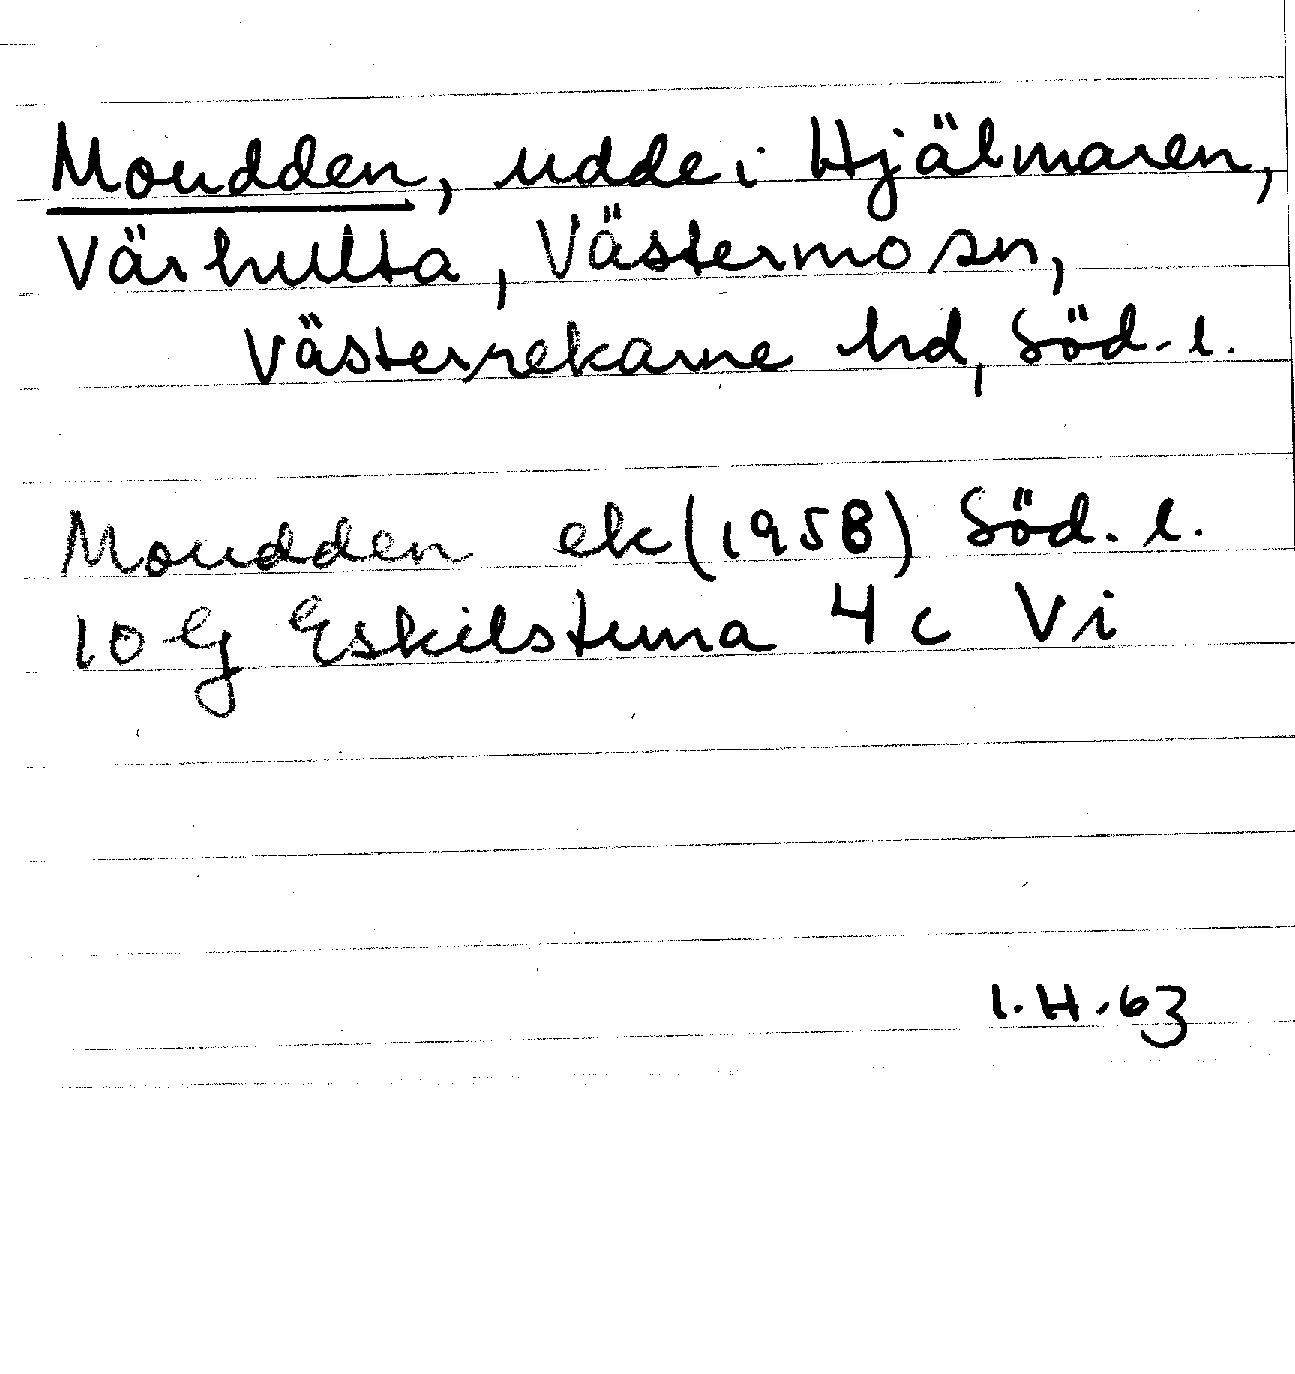 Moudden, udde i Hjälmaren,
Värhulta, Västermo sn,
Västerrekarne hd, Söd. l.
Moudden ek (1958) Söd. l.
10 G Eskilstuna 4 c Vi
I.H.63